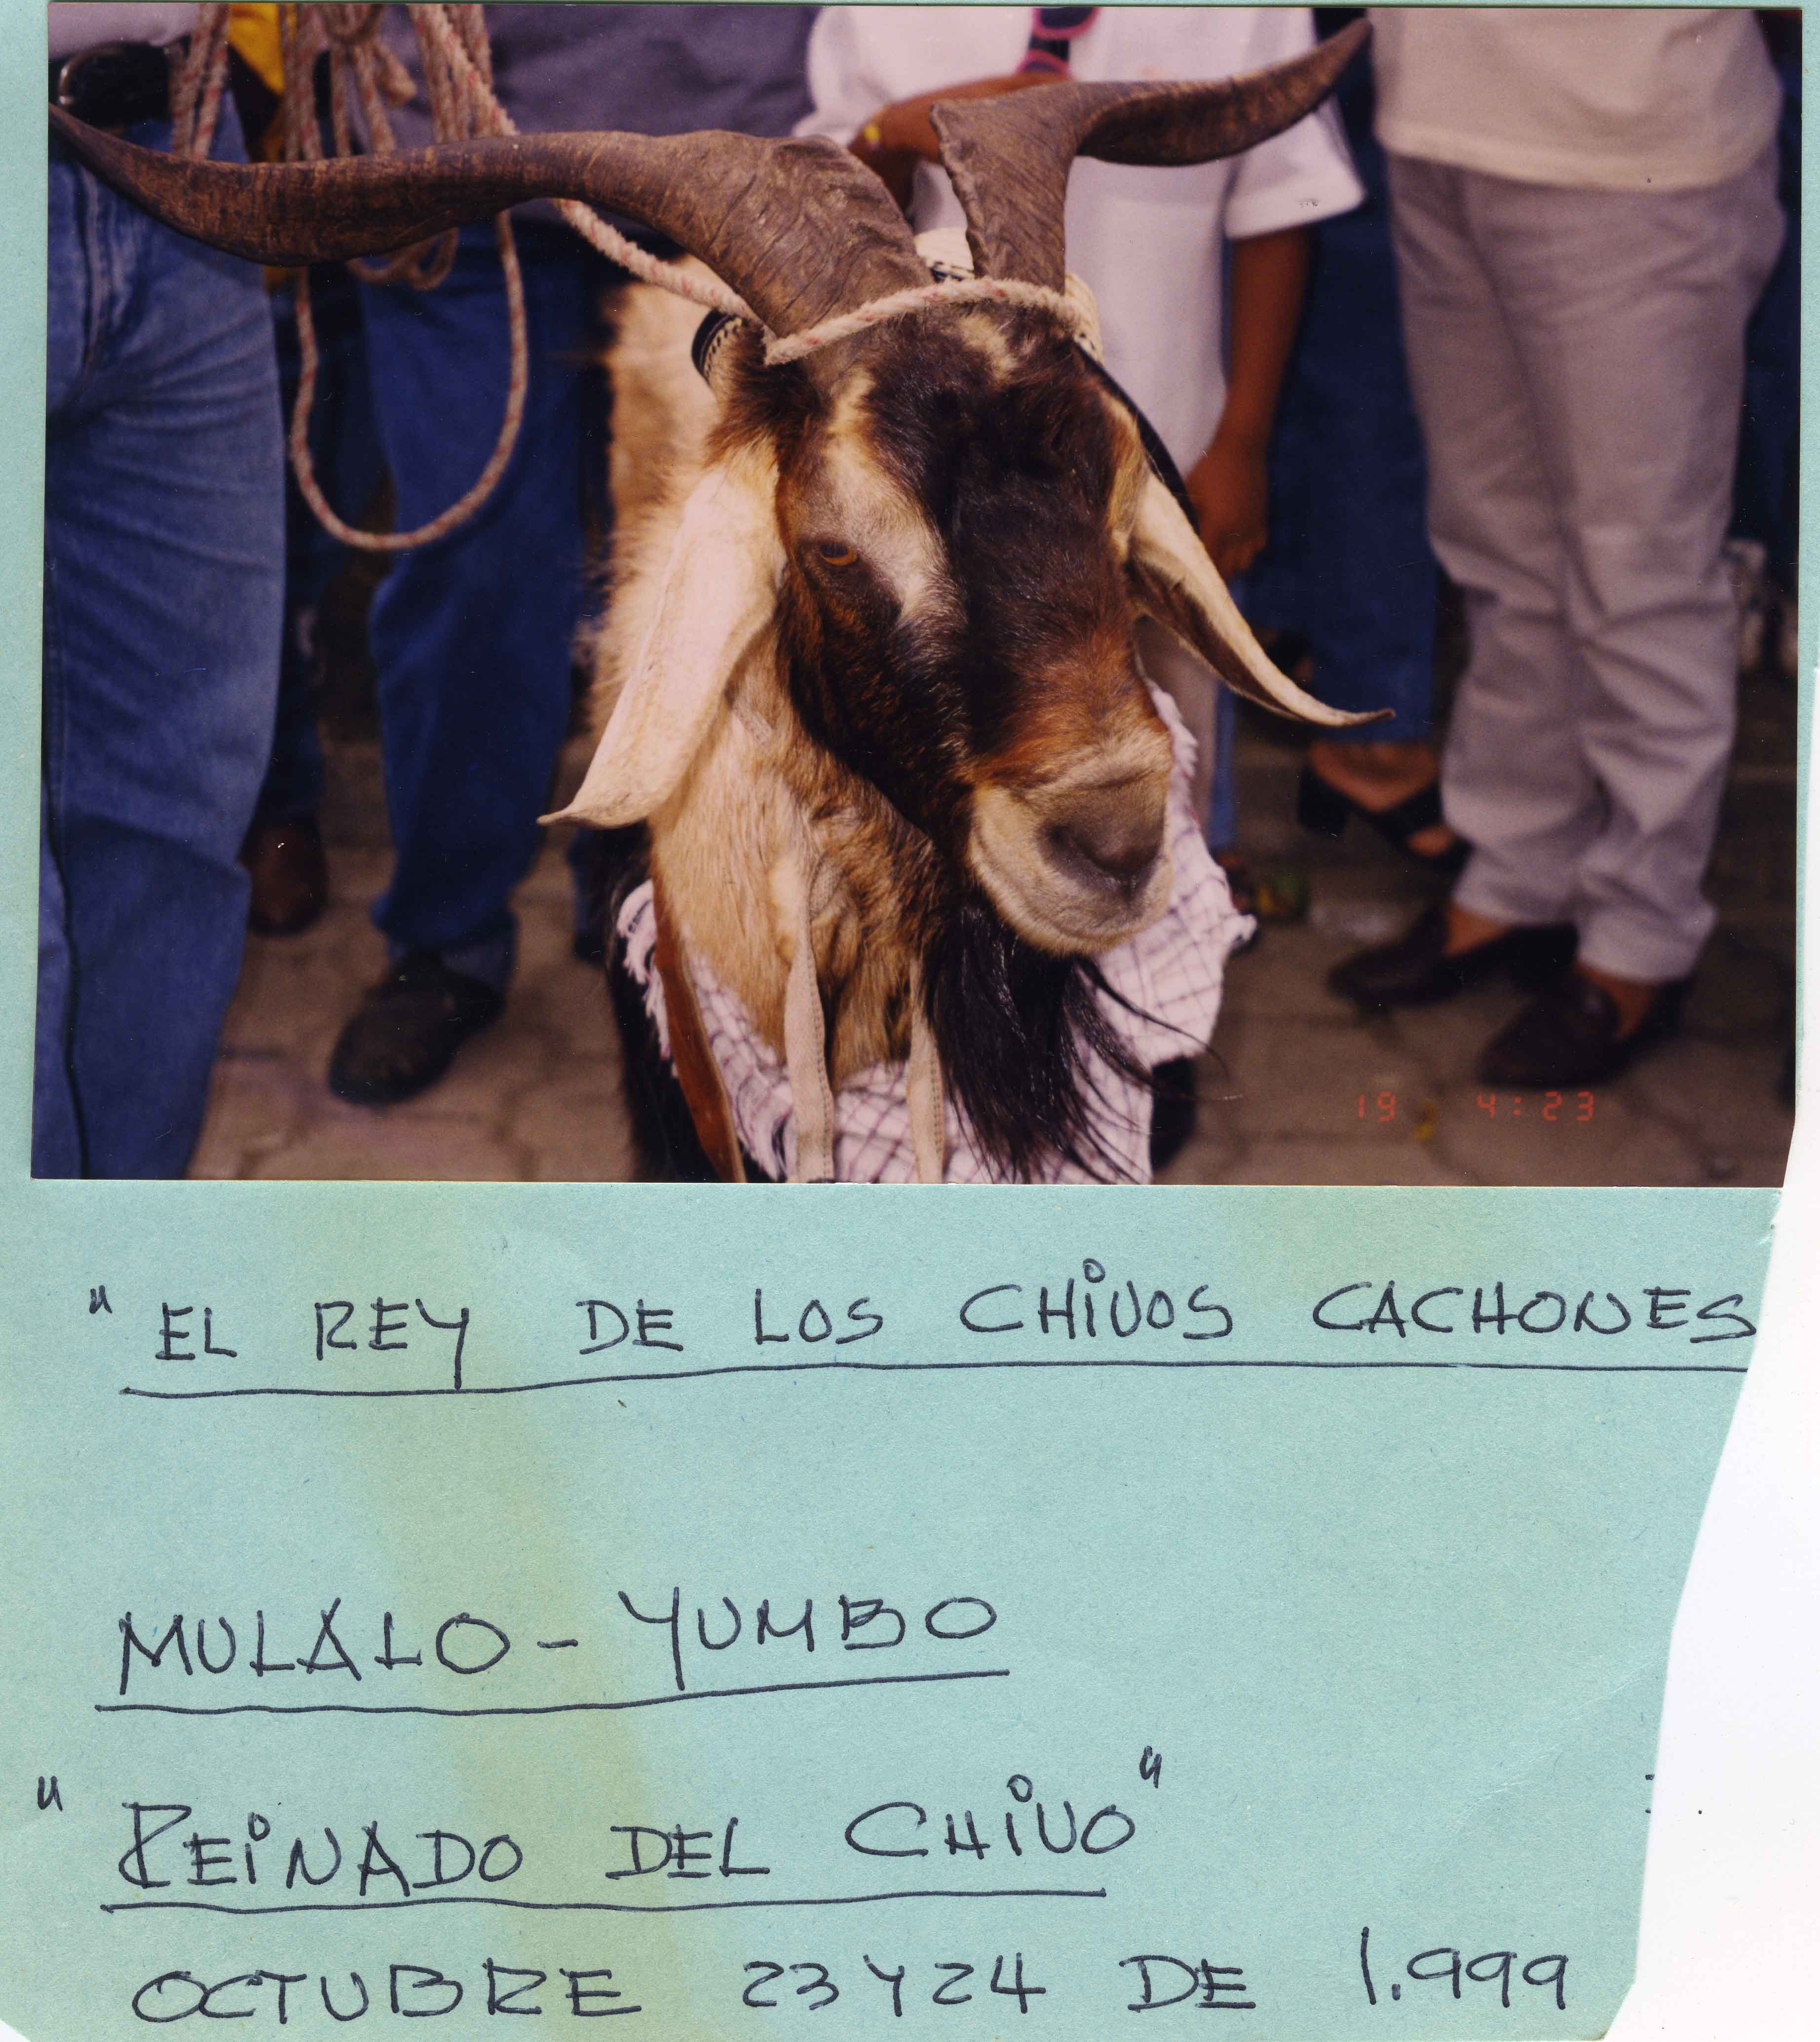 19 4:23
"EL REY DE LOS CHiVOS CACHONES
MULALO - YUMBO
"REiNADO DEL CHiVO"
OCTUBRE 23 Y 24 DE 1.999